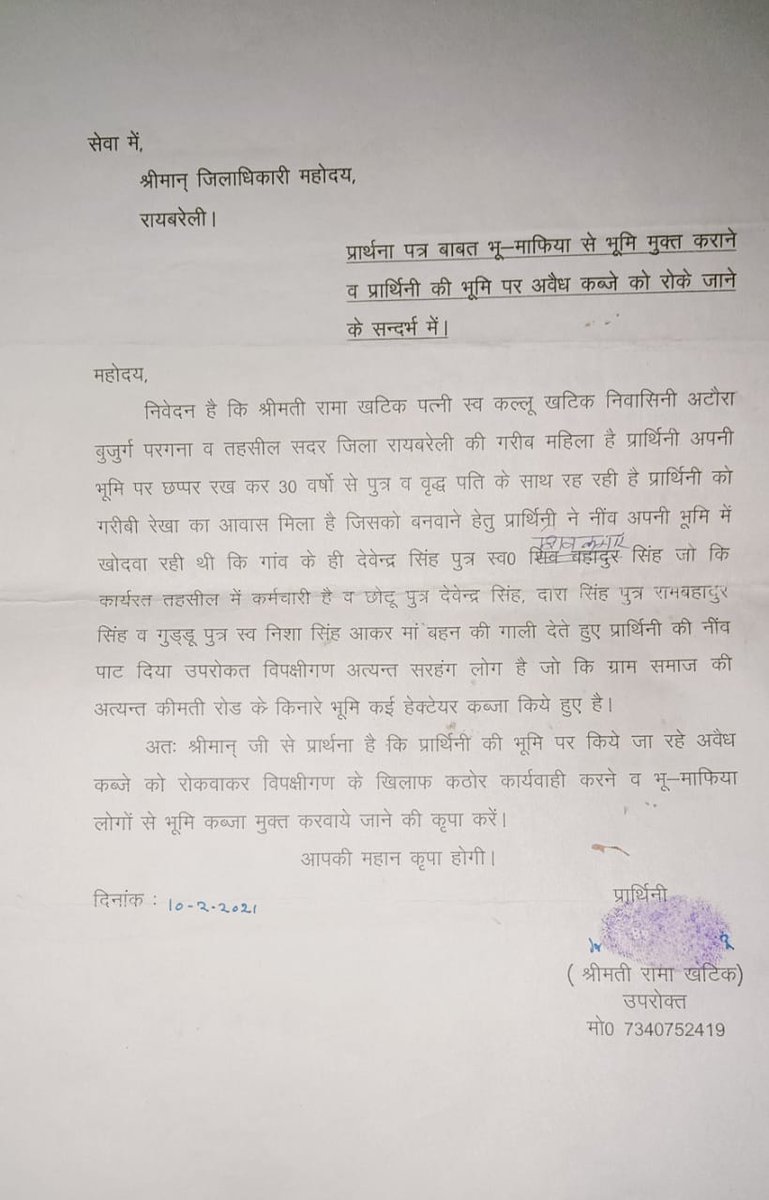 सेवा में,
श्रीमान् जिलाधिकारी महोदय,
रायबरेली।
प्रार्थना पत्र बाबत भू–माफिया से भूमि मुक्त कराने
व प्रार्थिनी की भूमि पर अवैध कब्जे को रोके जाने
के सन्दर्भ में।
महोदय,
निवेदन है कि श्रीमती रामा खटिक पत्नी स्व कल्लू खटिक निवासिनी अटौरा
बुजुर्ग परगना व तहसील सदर जिला रायबरेली की गरीब महिला है प्रार्थिनी अपनी
भूमि पर छप्पर रख कर 30 वर्षो से पुत्र व वृद्ध पति के साथ रह रही है प्रार्थिनी को
गरीबी रेखा का आवास मिला है जिसको बनवाने हेतु प्रार्थिनी ने नींव अपनी भूमि में
शिव कुमार
खोदवा रही थी कि गांव के ही देवेन्द्र सिंह पुत्र स्व0 शिव बहादुर सिंह जो कि
कार्यरत तहसील में कर्मचारी है व छोटू पुत्र देवेन्द्र सिंह, दारा सिंह पुत्र रामबहादुर
सिंह व गुड्डू पुत्र स्व निशा सिंह आकर मां बहन की गाली देते हुए प्रार्थिनी की नींव
पाट दिया उपरोकत विपक्षीगण अत्यन्त सरहंग लोग है जो कि ग्राम समाज की
अत्यन्त कीमती रोड के किनारे भूमि कई हेक्टेयर कब्जा किये हुए है।
अतः श्रीमान् जी से प्रार्थना है कि प्रार्थिनी की भूमि पर किये जा रहे अवैध
कब्जे को रोकवाकर विपक्षीगण के खिलाफ कठोर कार्यवाही करने व भू–माफिया
लोगों से भूमि कब्जा मुक्त करवाये जाने की कृपा करें।
आपकी महान कृपा होगी।
दिनांक : 10-2-2021
प्रार्थिनी
( श्रीमती रामा खटिक)
उपरोक्त
मो0 7340752419